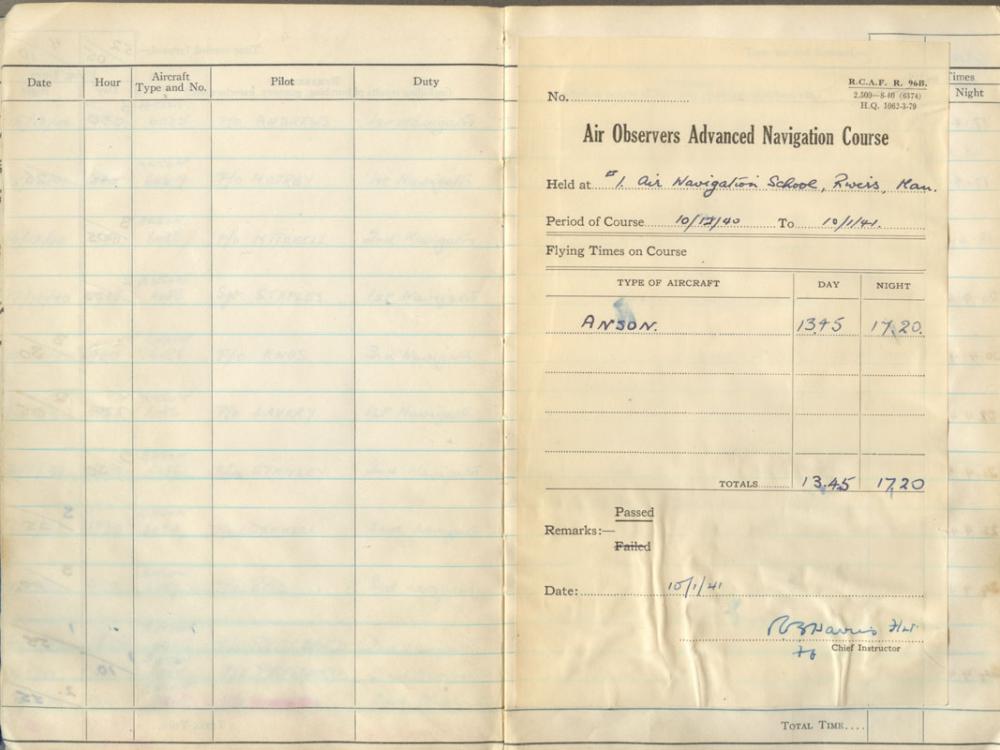 Date Hour Aircraft Type and No. Pilot Duty
R.C.A.F. R. 96B.
2,500—8-40 (6374)
H.Q. 1062-3-79
No.
Air Observers Advanced Navigation Course
Held at #1. Air Navigation School, Rivers, Man.
Period of Course 10/12/40 To 10/1/41.
Flying Times on Course
TYPE OF AIRCRAFT DAY NIGHT
ANSON. 13.45 17.20.
TOTALS 13.45 17.20
Passed
Remarks:—
Failed
Date: 10/1/41
Chief Instructor
Times
Night
TOTAL TIME....